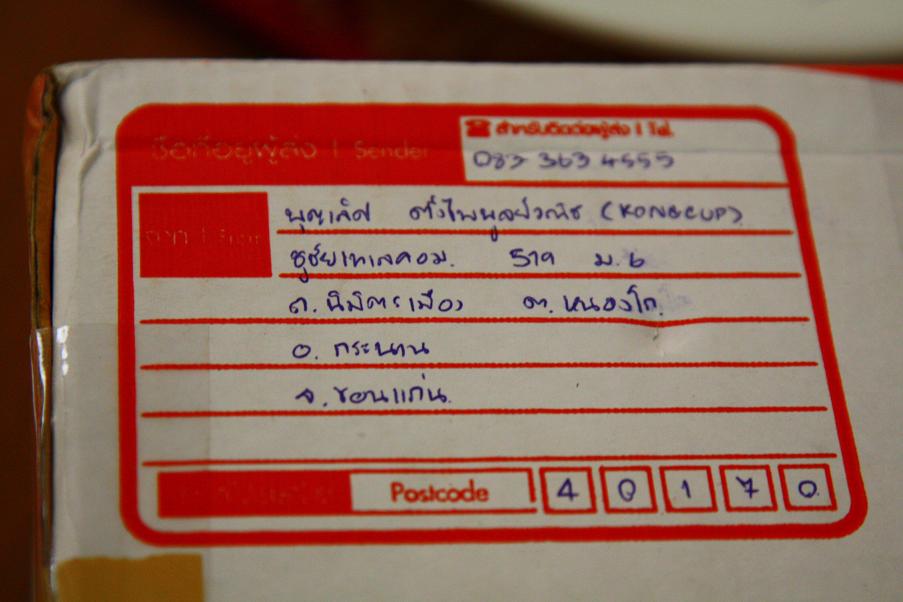 ชื่อที่อยู่ผู้ส่ง | Sender
☎ สำหรับติดต่อผู้ส่ง | Tel.
083 363 4555
บุญเลิศ ตั้งไพบูลย์วณิช (KONGCUP)
ชูชัยเทเลคอม. 519 ม.6
ถ.นิมิตรเมือง ต.หนองโก.
อ. กระนวน
จ.ขอนแก่น.
Postcode 4 0 1 7 0